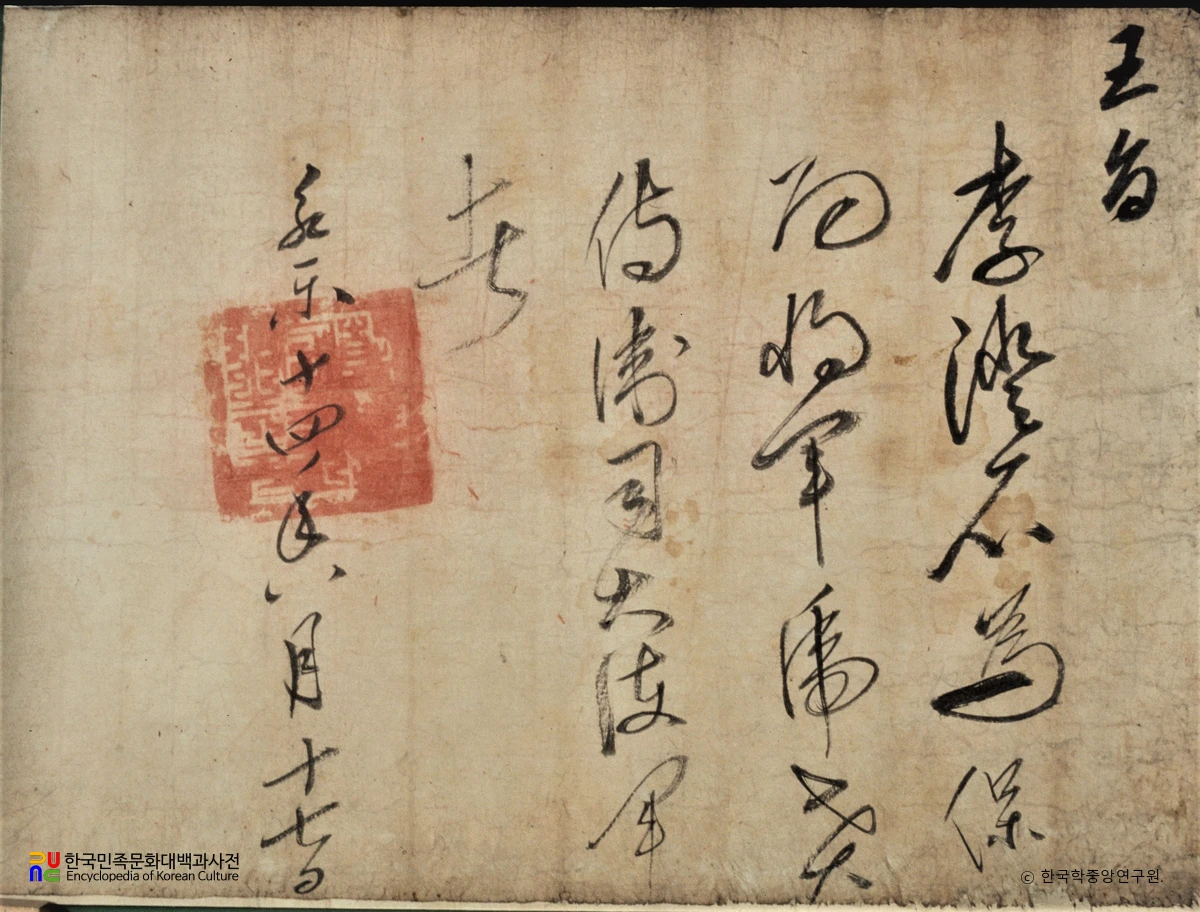 王旨
李澄石爲保
功將軍虎賁
侍衛司大護軍
者
永樂十四年八月十七日
한국민족문화대백과사전
Encyclopedia of Korean Culture
ⓒ 한국학중앙연구원.